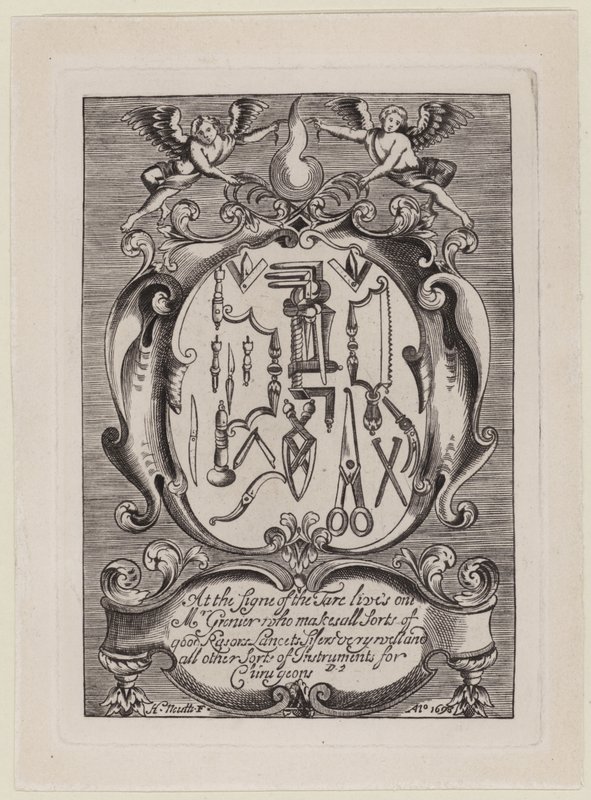 At the signe of the Tare live's one
Mr Grenier who makes all Sorts of
good Rasors Lancets Sisers very well and
all other Sorts of Instruments for
Chirugeons
F.
Ao